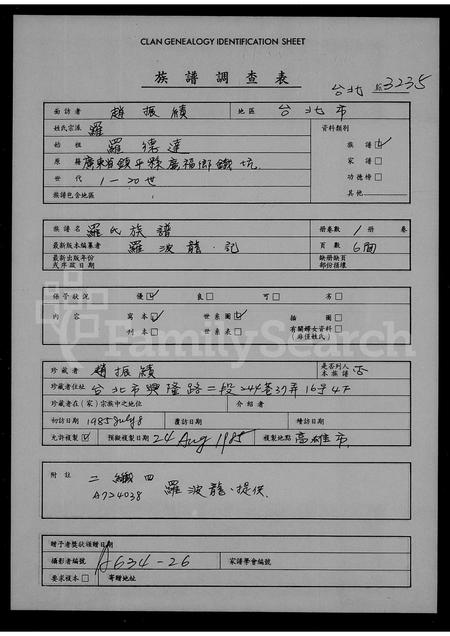 CLAN GENEALOGY IDENTIFICATION SHEET
族譜調查表
台北 3235
面訪者 趙振績 地區 台北市
姓氏宗派 羅 資料類別
始祖 羅德達 族譜☑
原籍 廣東省鎮平縣廣福鄉鐵坑 家譜□
世代 1-20世 功德榜□
族譜包含地區 其他
族譜名 羅氏族譜 冊卷數 1 冊 卷
最新版本編纂者 羅波龍·記 頁數 6面
最新出版年份或序跋日期 缺冊缺頁部份損壞
保管狀況 優☑ 良□ 可□ 布□
內容 寫本☑ 世系圖☑ 插圖□
刊本□ 世系表□ 有關婦女資料□(非僅姓氏)
珍藏者 趙振績 是否列入本族譜 否
珍藏者住址 台北市興隆路二段244巷37弄16号4F
珍藏者在(家)宗族中之地位 介紹者
初訪日期 1985July8 覆訪日期 續訪日期
允許複製☑ 預擬複製日期 24 Aug 1985 複製地點 高雄市
附註 二 四
A724038 羅波龍·提供
FamilySearch
贈予者獎狀頒贈日期
攝影者編號 A634-26 家譜學會編號
要求複本□ 寄贈地址